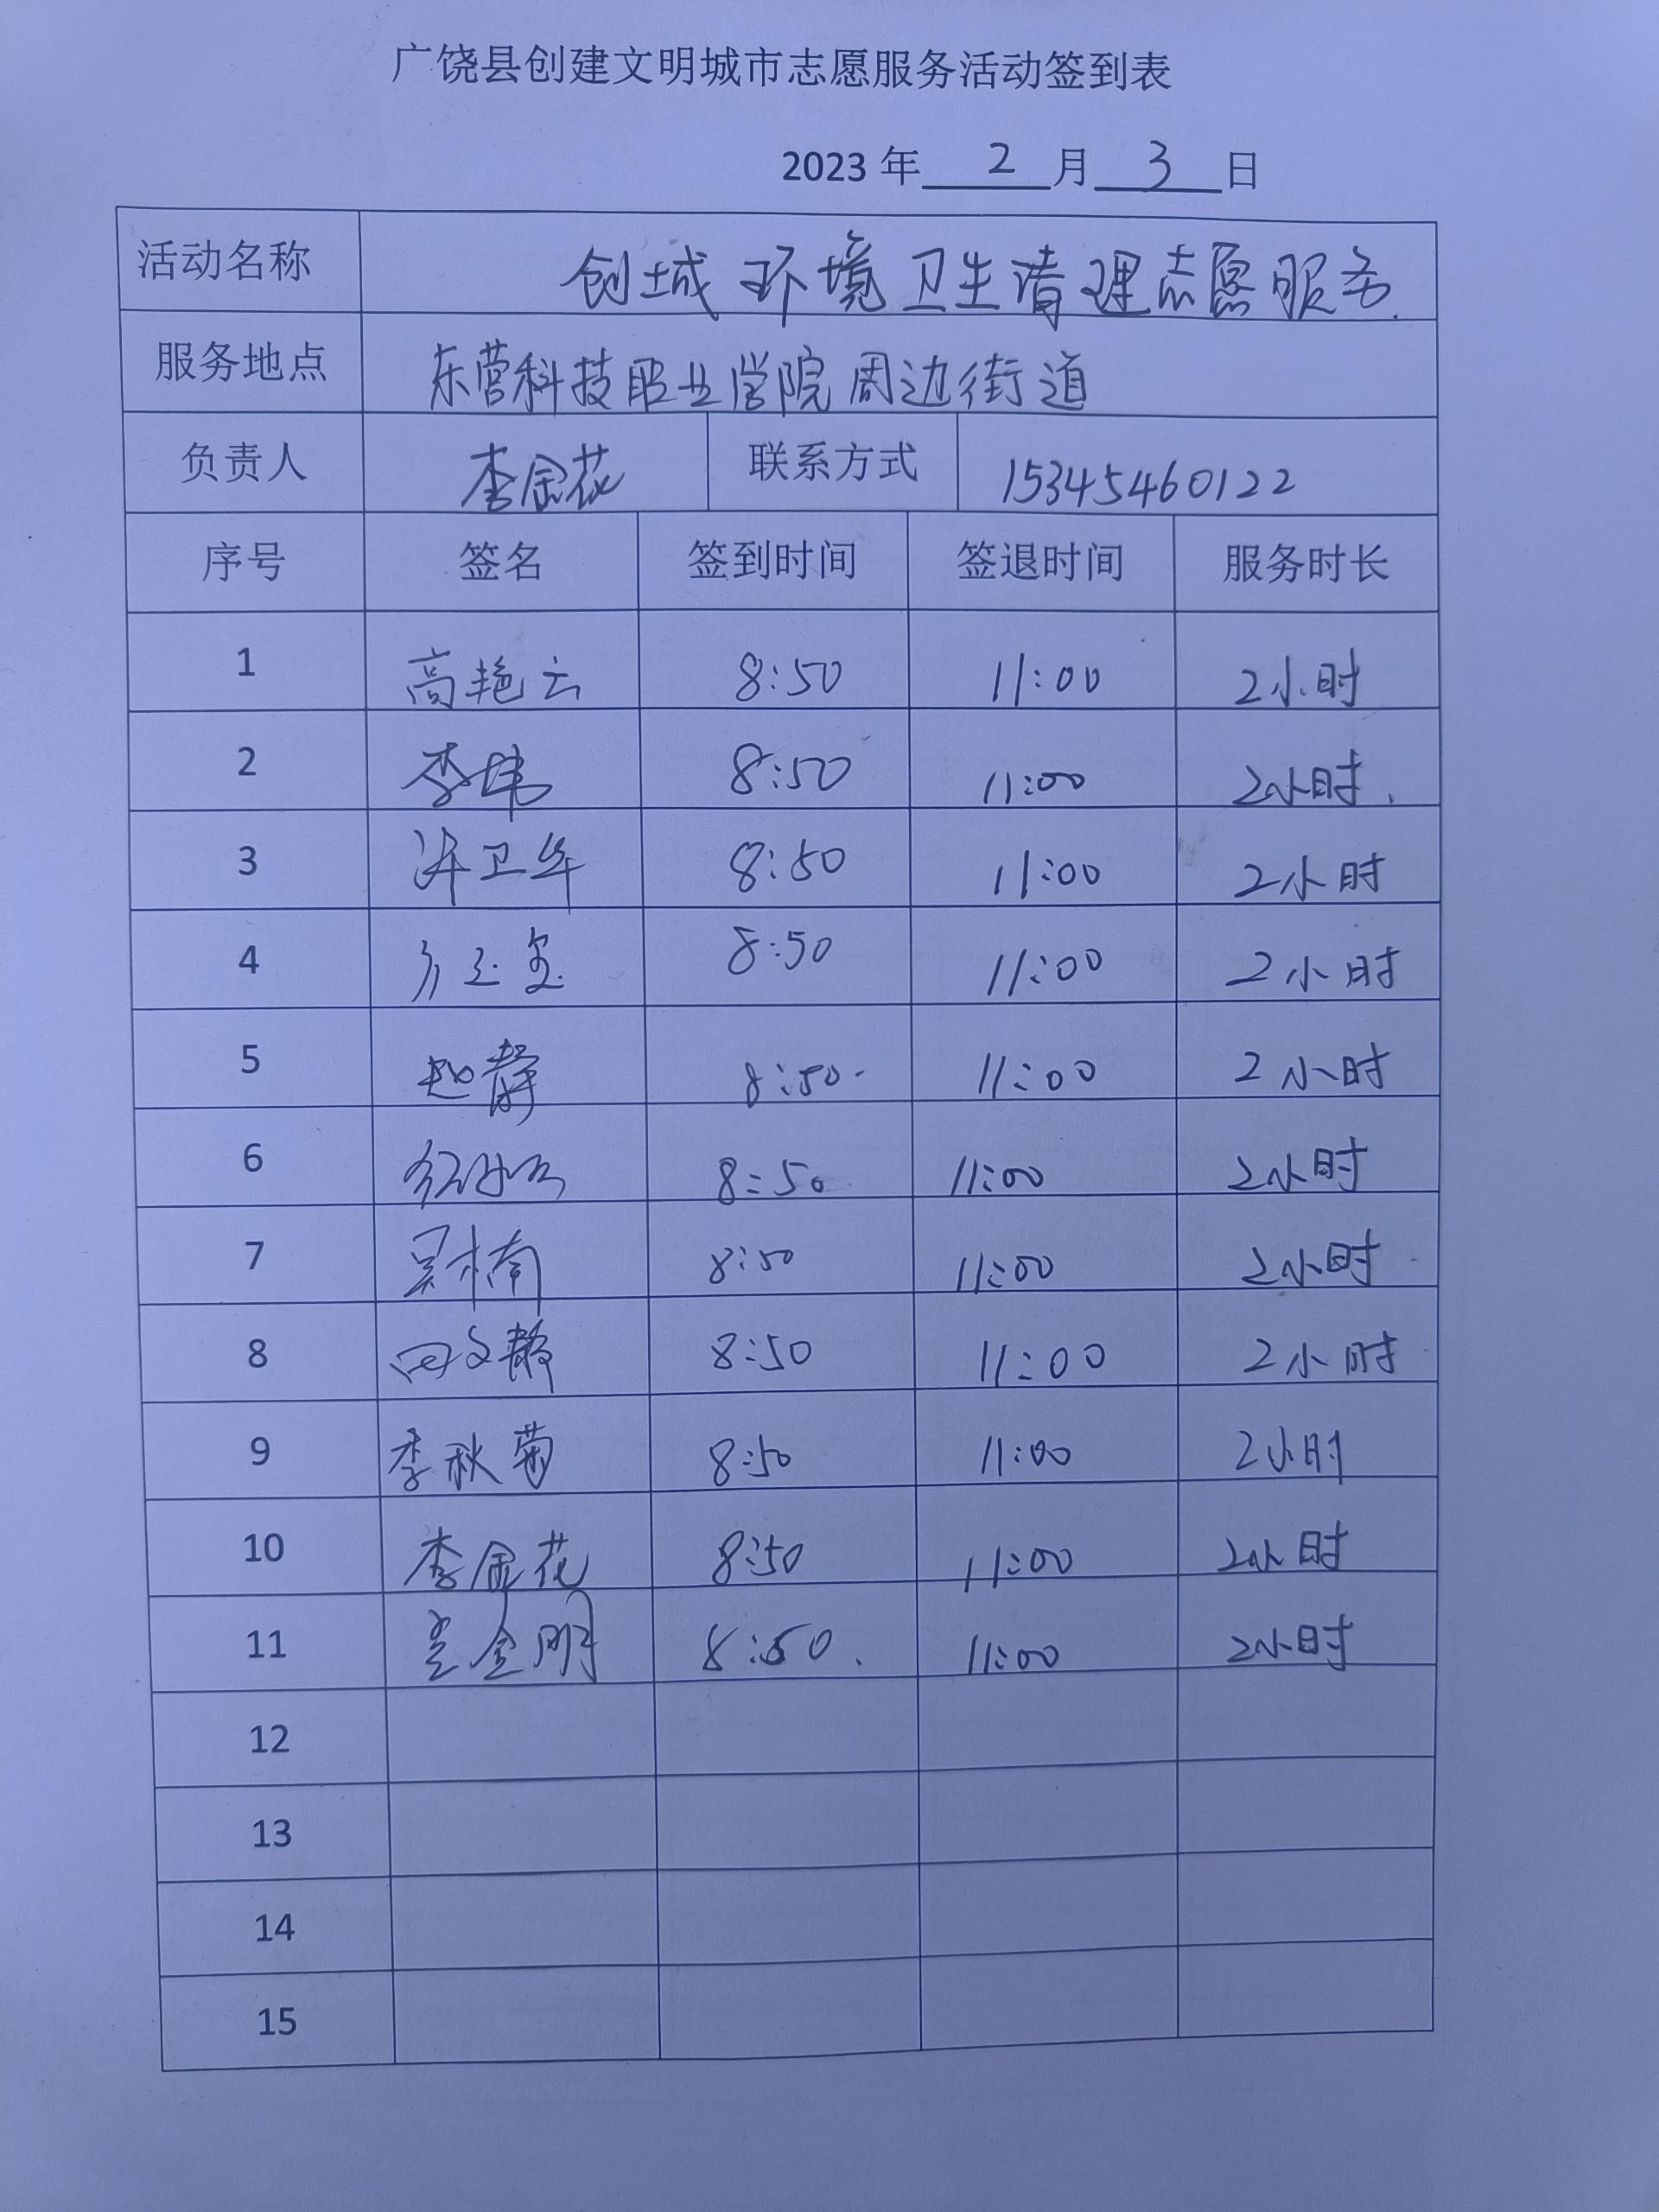 广饶县创建文明城市志愿服务活动签到表
2023 年 2 月 3 日
活动名称 创城环境卫生清理志愿服务.
服务地点 东营科技职业学院周边街道
负责人 李金花 联系方式 15345460122
序号 签名 签到时间 签退时间 服务时长
1 高艳云 8:50 11:00 2小时
2 李炜 8:50 11:00 2小时.
3 许卫华 8:50 11:00 2小时
4 8:50 11:00 2小时
5 赵静 8:50 11:00 2小时
6 8:50 11:00 2小时
7 吴楠 8:50 11:00 2小时
8 田文静 8:50 11:00 2小时
9 李秋菊 8:50 11:00 2小时
10 李金花 8:50 11:00 2小时
11 金明 8:50. 11:00 2小时
12
13
14
15